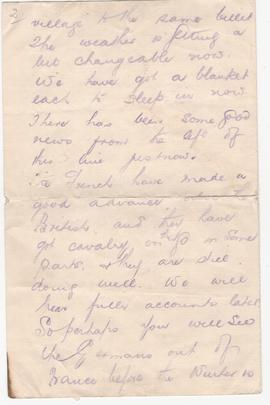 2/
village to the same billet
The weather is getting a
bit changeable now.
We have got a blanket
each to sleep in now
There has been some good
news from the
this line just now.
The French have made a
good advance also the
British. and they have
got cavalry in some
parts. & they are still
doing well. We will
hear fuller accounts later.
So perhaps you will see
the Germans out of
France before the Winter is